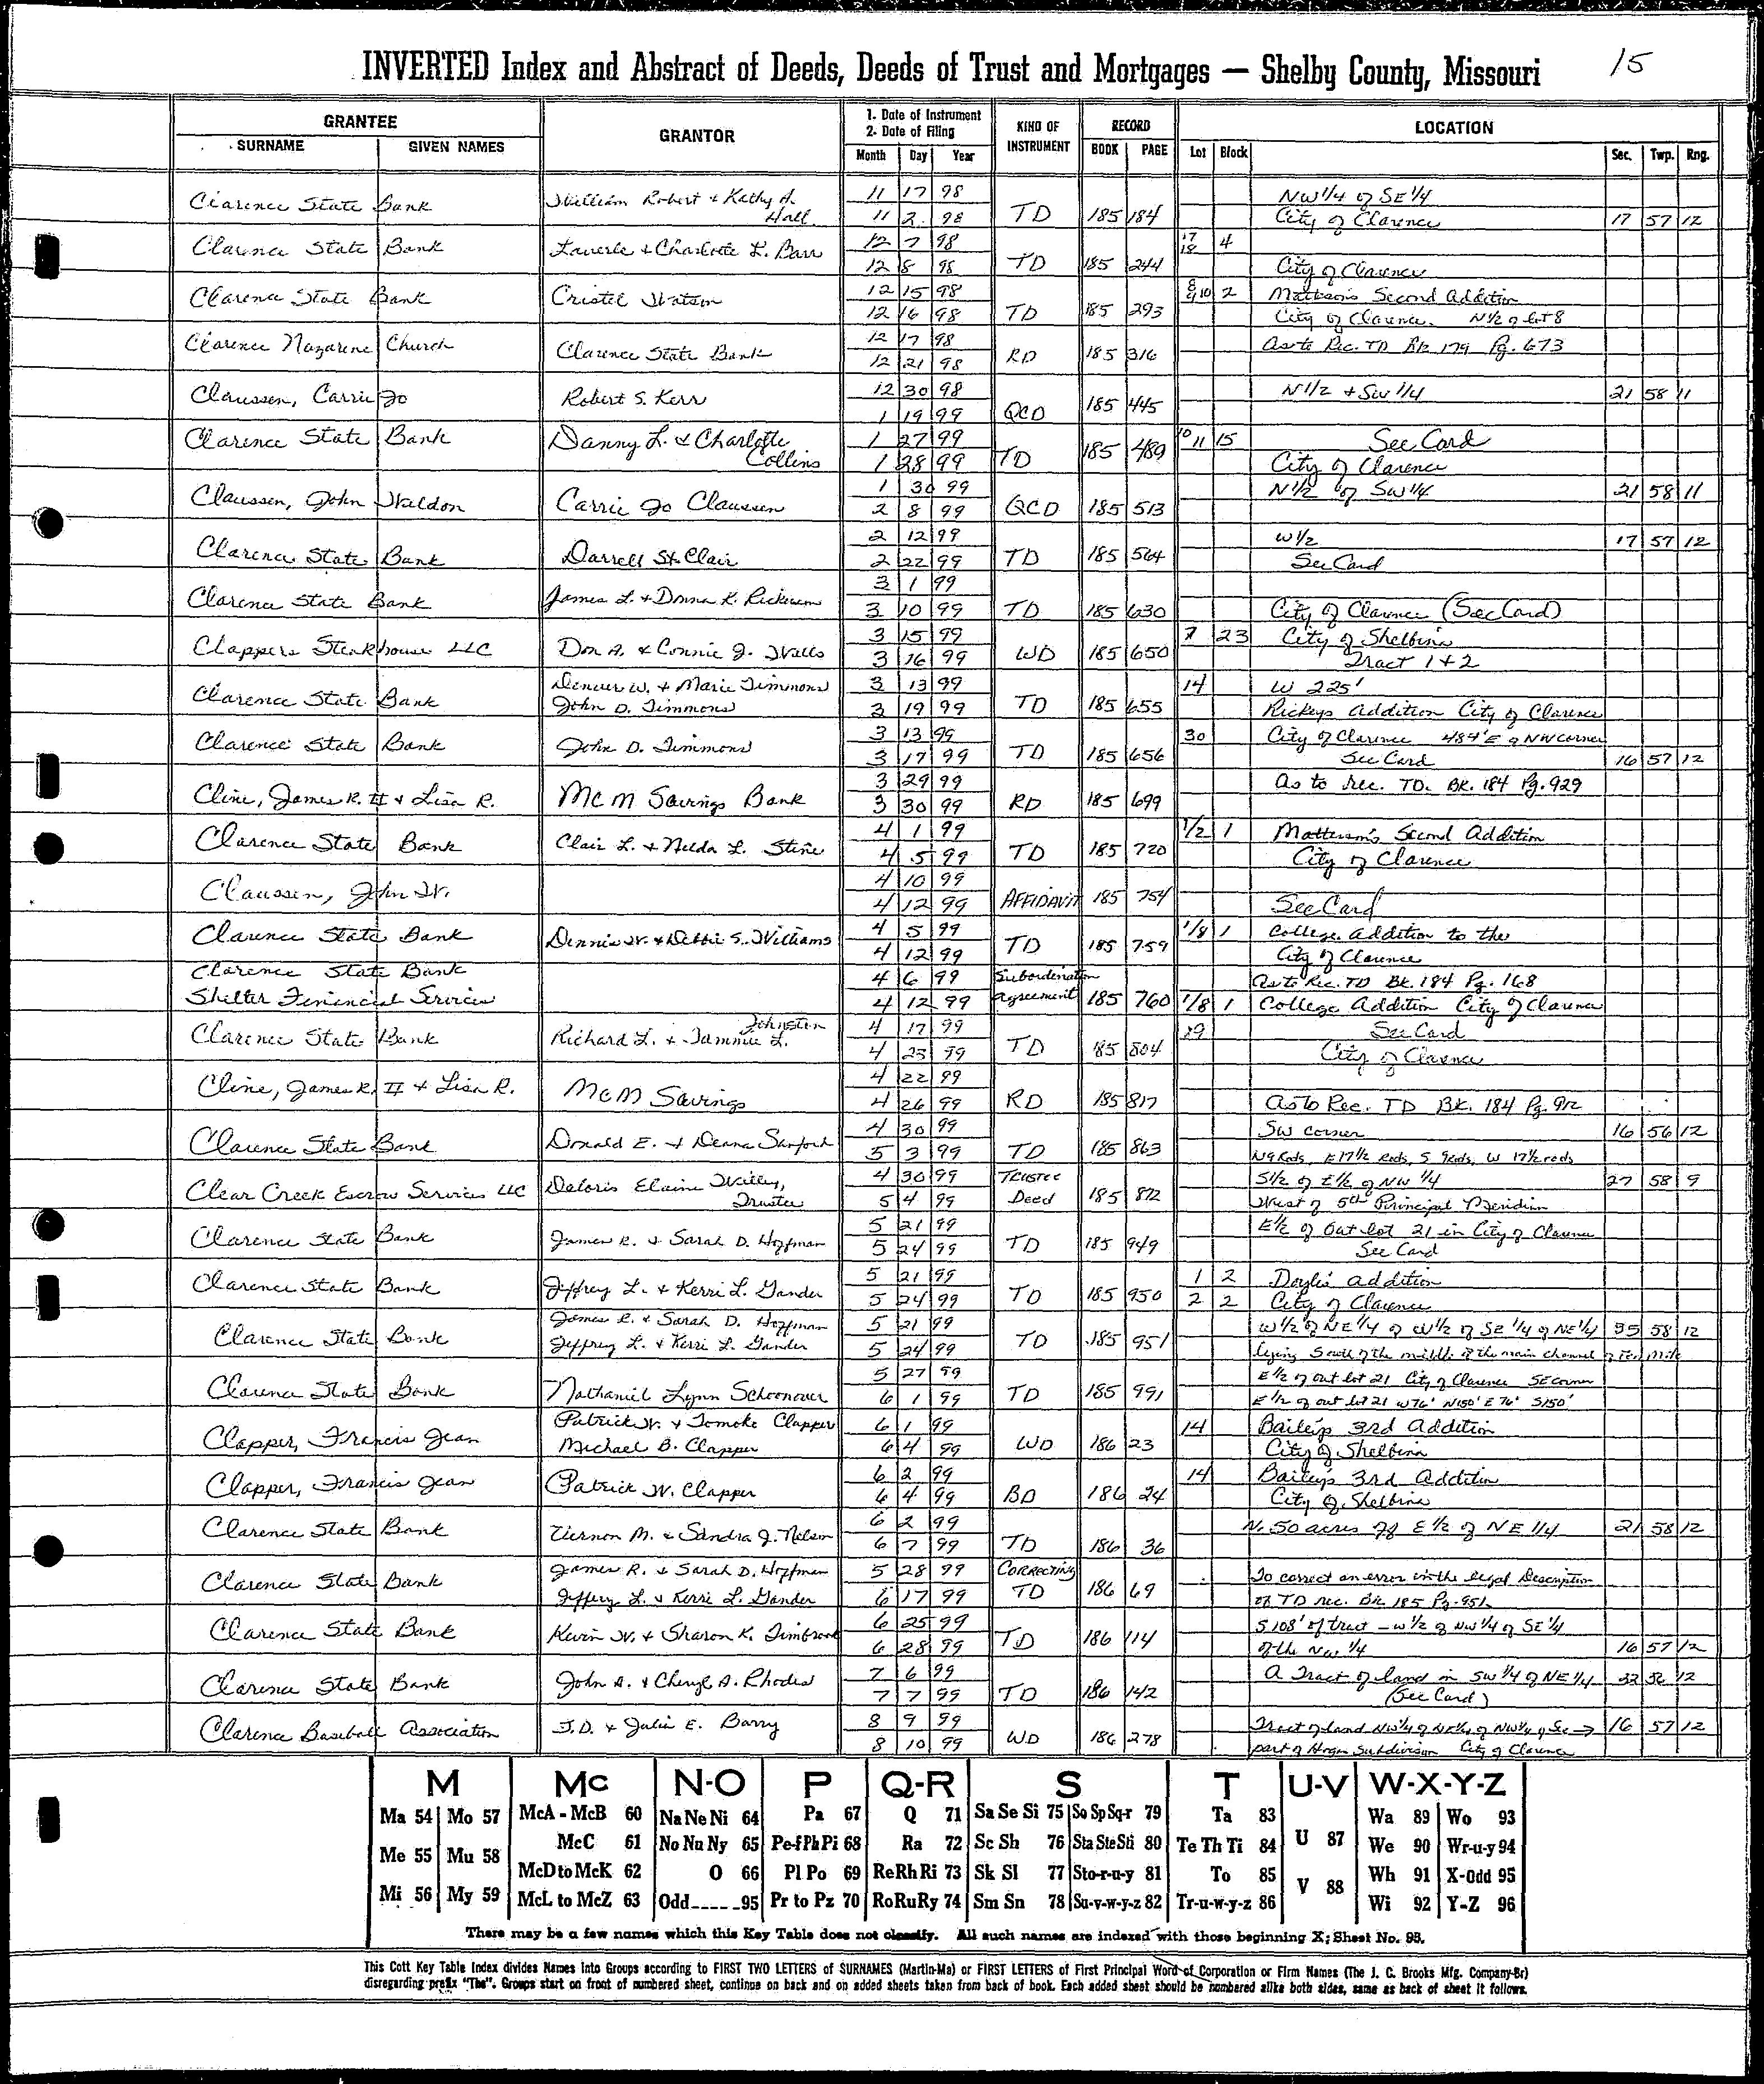 INVERTED Index and Abstract of Deeds, Deeds of Trust and Mortgages — Shelby County, Missouri 15
GRANTEE GRANTOR 1. Date of Instrument 2. Date of Filing KIND OF INSTRUMENT RECORD LOCATION
SURNAME GIVEN NAMES Month Day Year BOOK PAGE Lot Block Sec. Twp. Rng.
William Robert & Kathy A. 11 17 98 NW 1/4 of SE 1/4
Clarence State Bank Hall 11 2 98 TD 185 184 City of Clarence 17 57 12
Clarence State Bank Laverle & Charlotte L. Barr 12 7 98 17 18 4
12 8 98 TD 185 244 City of Clarence
Clarence State Bank Cristel Watson 12 15 98 8 9 10 2 Mattson's Second Addition
12 16 98 TD 185 293 City of Clarence. N 1/2 of lot 8
Clarence Nazarene Church Clarence State Bank 12 17 98 As to Rec. TD Bk 179 Pg. 673
12 21 98 RD 185 316
Claussen, Carrie Jo Robert S. Kerr 12 30 98 N 1/2 + SW 1/4 21 58 11
1 19 99 QCD 185 445
Clarence State Bank Danny L. & Charlotte 1 27 99 10 11 15 See Card
Collins 1 28 99 TD 185 489 City of Clarence
Claussen, John Weldon Carrie Jo Claussen 1 30 99 N 1/2 of SW 1/4 21 58 11
2 8 99 QCD 185 513
Clarence State Bank Darrell St. Clair 2 12 99 W 1/2 17 57 12
2 22 99 TD 185 564 See Card
Clarence State Bank James L. & Donna K. 3 1 99
3 10 99 TD 185 630 City of Clarence (See Card)
Clappers Steakhouse LLC Don A. & Connie J. Watts 3 15 99 7 23 City of Shelbina
3 16 99 WD 185 650 Tract 1 + 2
Clarence State Bank Denver W. & Marie Timmons 3 13 99 14 W 225'
John D. Timmons 3 19 99 TD 185 655 Rickeys Addition City of Clarence
Clarence State Bank John D. Timmons 3 13 99 30 City of Clarence 484' E of NW corner
3 17 99 TD 185 656 See Card 16 57 12
Cline, James R. II & Lisa R. MCM Savings Bank 3 29 99 As to rec. TD. Bk. 184 Pg. 929
3 30 99 RD 185 699
Clarence State Bank Clair L. & Nelda L. Stine 4 1 99 1/2 1 Matterson's Second Addition
4 5 99 TD 185 720 City of Clarence
Claussen, John W. 4 10 99
4 12 99 AFFIDAVIT 185 754 See Card
Clarence State Bank Dennis W. & Debbie S. Williams 4 5 99 1/8 1 College Addition to the
4 12 99 TD 185 759 City of Clarence
Clarence State Bank 4 6 99 Subordination As to Rec. TD Bk. 184 Pg. 168
Shelter Financial Services 4 12 99 Agreement 185 760 1/8 1 College Addition City of Clarence
Clarence State Bank Richard L. & Tammie L. Johnston 4 17 99 29 See Card
4 23 99 TD 185 804 City of Clarence
Cline, James R. II & Lisa R. MCM Savings 4 22 99
4 26 99 RD 185 817 As to Rec. TD Bk. 184 Pg. 912
Clarence State Bank Donald E. & Deana Sanford 4 30 99 SW corner 16 56 12
5 3 99 TD 185 863 N 9 Rods, E 17 1/2 Rods, S 9 Rods, W 17 1/2 rods
Clear Creek Escrow Services LLC Deloris Elaine Willey, 4 30 99 Trustee S 1/2 of E 1/2 of NW 1/4 27 58 9
Trustee 5 4 99 Deed 185 872 West of 5th Principal Meridian
Clarence State Bank James R. & Sarah D. Hoffman 5 21 99 E 1/2 of Out lot 21 in City of Clarence
5 24 99 TD 185 949 See Card
Clarence State Bank Jeffrey L. & Kerri L. Gander 5 21 99 1 2 Doyle's Addition
5 24 99 TD 185 950 2 2 City of Clarence
Clarence State Bank James R. & Sarah D. Hoffman 5 21 99 W 1/2 of NE 1/4 of W 1/2 of SE 1/4 of NE 1/4 35 58 12
Jeffrey L. & Kerri L. Gander 5 24 99 TD 185 951 lying South of the middle of the main channel of Ten Mile
5 27 99 E 1/2 of out lot 21 City of Clarence SE corner
Clarence State Bank Nathaniel Lynn Schoonover 6 1 99 TD 185 991 E 1/2 of out lot 21 W 76' N 150' E 76' S 150'
Clapper, Francis Jean Patrick W. & Tomoko Clapper 6 1 99 14 Bailey's 3rd Addition
Michael B. Clapper 6 4 99 WD 186 23 City of Shelbina
Clapper, Francis Jean Patrick W. Clapper 6 2 99 14 Bailey's 3rd Addition
6 4 99 BD 186 24 City of Shelbina
Clarence State Bank Vernon M. & Sandra J. Nelson 6 2 99 N. 50 acres off E 1/2 of NE 1/4 21 58 12
6 7 99 TD 186 36
Clarence State Bank James R. & Sarah D. Hoffman 5 28 99 Correcting To correct an error in the legal Description
Jeffery L. & Kerri L. Gander 6 17 99 TD 186 69 of TD rec. Bk 185 Pg. 951
Clarence State Bank Kevin W. & Sharon K. Timbrook 6 25 99 S 108' of tract - W 1/2 of NW 1/4 of SE 1/4
6 28 99 TD 186 114 of the NW 1/4 16 57 12
Clarence State Bank John A. & Cheryl A. Rhodes 7 6 99 A Tract of land in SW 1/4 of NE 1/4 32 56 12
7 7 99 TD 186 142 (See Card)
Clarence Baseball Association J.D. & Julia E. Barry 8 9 99 Tract of land NW 1/4 of NE 1/4 of NW 1/4 of Se → 16 57 12
8 10 99 WD 186 278 part of Hogan Subdivision City of Clarence
M Mc N-O P Q-R S T U-V W-X-Y-Z
Ma 54 Mo 57 McA - McB 60 Na Ne Ni 64 Pa 67 Q 71 Sa Se Si 75 So Sp Sq-r 79 Ta 83 Wa 89 Wo 93
Me 55 Mu 58 McC 61 No Nu Ny 65 Pe-f Ph Pi 68 Ra 72 Sc Sh 76 Sta Ste Sti 80 Te Th Ti 84 U 87 We 90 Wr-u-y 94
McD to McK 62 O 66 Pl Po 69 Re Rh Ri 73 Sk Sl 77 Sto-r-u-y 81 To 85 V 88 Wh 91 X-Odd 95
Mi 56 My 59 McL to McZ 63 Odd-----95 Pr to Pz 70 Ro Ru Ry 74 Sm Sn 78 Su-v-w-y-z 82 Tr-u-w-y-z 86 Wi 92 Y-Z 96
There may be a few names which this Key Table does not classify. All such names are indexed with those beginning X; Sheet No. 95.
This Cott Key Table Index divides Names into Groups according to FIRST TWO LETTERS of SURNAMES (Martin-Ma) or FIRST LETTERS of First Principal Word of Corporation or Firm Names (The J. C. Brooks Mfg. Company-Br)
disregarding prefix "The". Groups start on front of numbered sheet, continue on back and on added sheets taken from back of book. Each added sheet should be numbered alike both sides, same as back of sheet it follows.